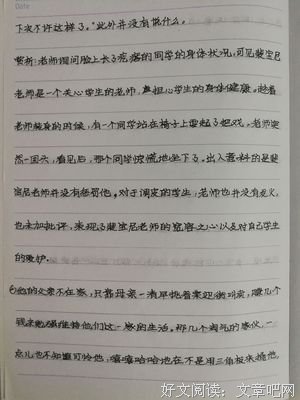 Date
下次不许这样了。"此外并没有说什么。
赏析:老师询问脸上长了疙瘩的同学的身体状况,可见裴宝尼
老师是一个关心学生的老师,真担心学生的身体健康。趁着
老师转身的时候,有一个同学站在椅子上耍起了把戏。老师突
然一回头,看见后,那个同学惊慌地坐下了。出人意料的是裴
宝尼老师并没有惩罚他。对于调皮的学生,老师也并没有发火,
也未加批评,表现了裴宝尼老师的宽容之心以及对自己学生
的爱护。
⑥他的父亲不在家,只靠母亲一清早挑着菜沿街叫卖,赚几个
钱来勉强维持他们这一家的生活。那几个淘气的家伙,一
点儿也不知道可怜他,嘻嘻哈哈地在不是用三角板来捅他,
好文阅读:文章吧网